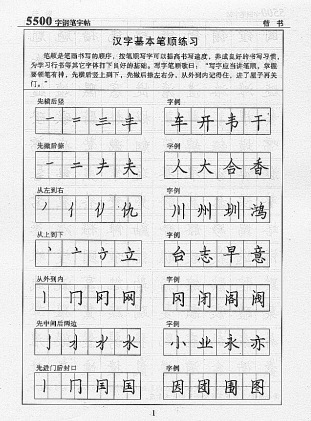 5500 字钢笔字帖 楷 书
汉字基本笔顺练习
笔顺是笔画书写的顺序，按笔顺写字可以提高书写速度，养成良好的书写习惯，
为学习行书等其它字体打下良好的基础。写字笔顺歌曰：“写字应当讲笔顺，掌握
要领笔有神，先横后竖上到下，先撇后捺左右分，从外到内记得住，进了屋子再关
门。”
先横后竖 字例
一 二 三 丰 车 开 韦 干
先撇后捺 字例
一 二 夫 夫 人 大 合 香
从左到右 字例
丿 亻 仇 川 州 圳 鸿
从上到下 字例
丶 亠 立 台 志 早 意
从外到内 字例
丨 冂 冈 网 冈 闭 阁 阀
先中间后两边 字例
亅 水 小 业 永 亦
先进门后封口 字例
丨 冂 国 国 因 团 围 图
1